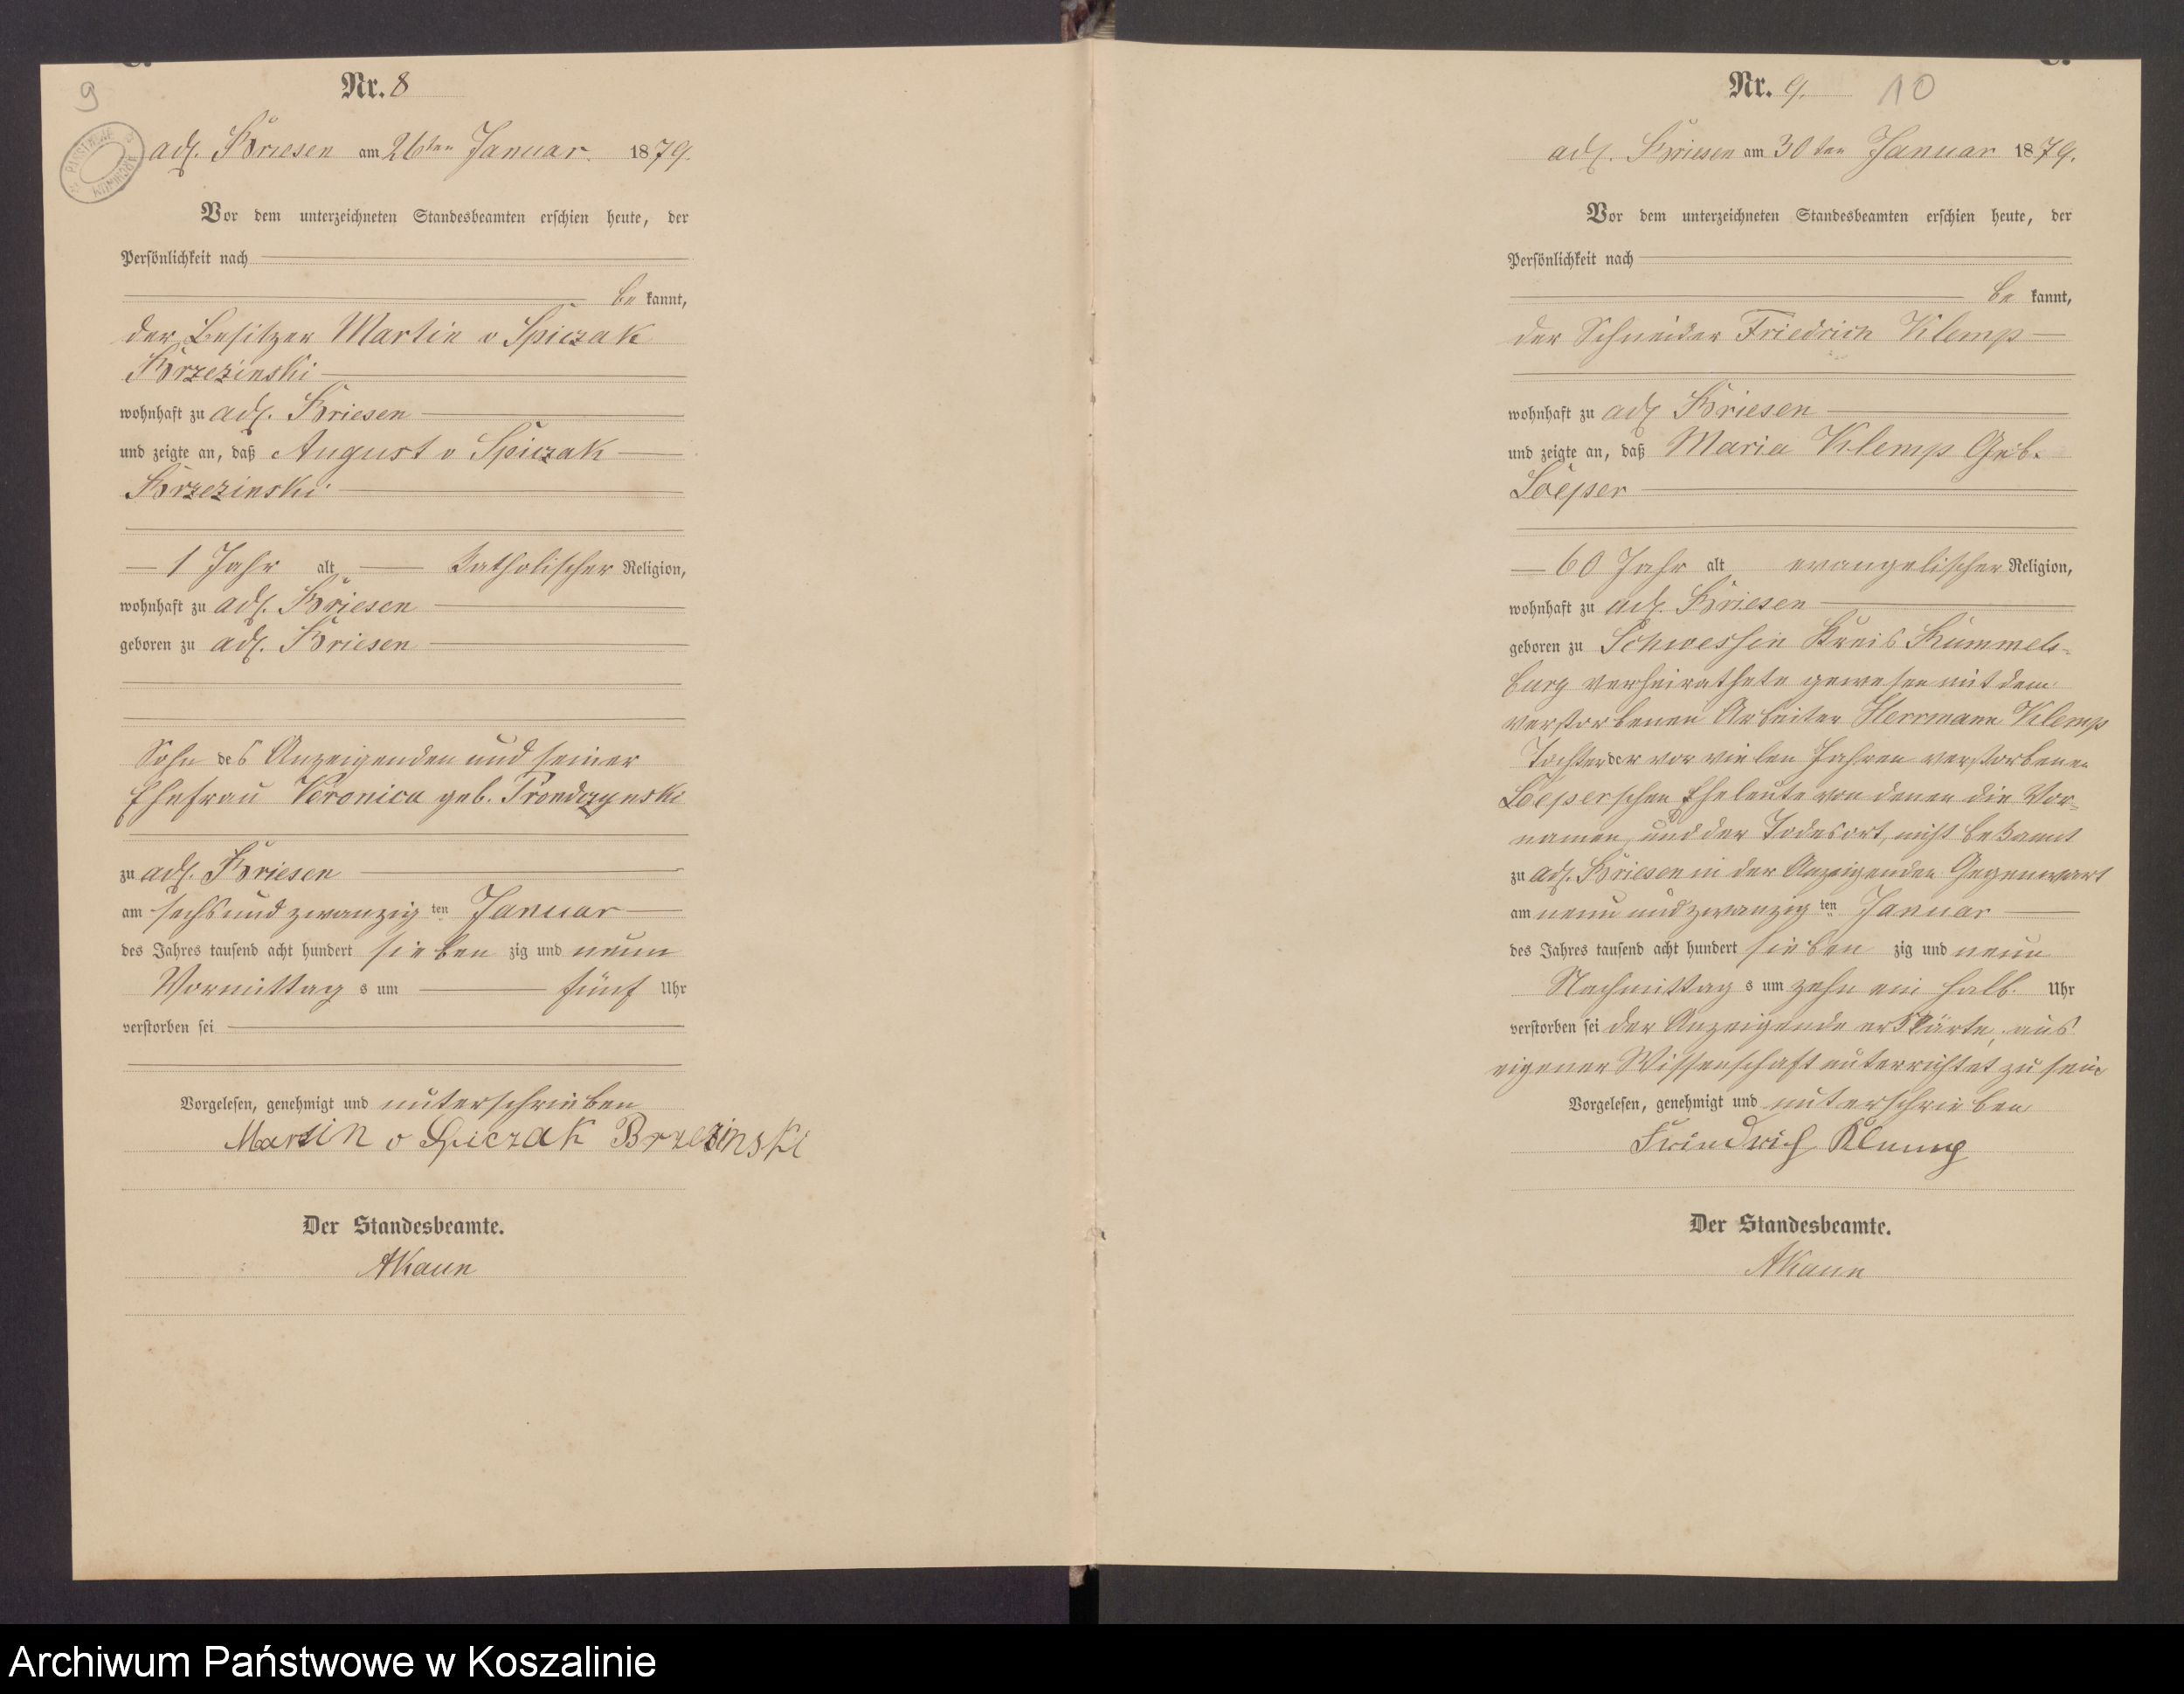 9
Nr. 8
adl. Briesen am 26ten Januar 1879.
Vor dem unterzeichneten Standesbeamten erschien heute, der
Persönlichkeit nach
be kannt,
der Besitzer Martin v Spiczak
Brzezinski
wohnhaft zu adl. Briesen
und zeigte an, daß August v Spiczak
Brzezinski
1 Jahr alt katholischer Religion,
wohnhaft zu adl. Briesen
geboren zu adl. Briesen
Sohn des Anzeigenden und seiner
Ehefrau Veronica geb. Prondzynski
zu adl. Briesen
am sechs und zwanzig ten Januar
des Jahres tausend acht hundert sieben zig und neun
Vormittag s um fünf Uhr
verstorben sei
Vorgelesen, genehmigt und unterschrieben
Martin v Spiczak Brzezinski
Der Standesbeamte.
AKaun
Nr. 9. 10
adl. Briesen am 30ten Januar 1879.
Vor dem unterzeichneten Standesbeamten erschien heute, der
Persönlichkeit nach
be kannt,
der Schneider Friedrich Klemp
wohnhaft zu adl Briesen
und zeigte an, daß Maria Klemp Geb.
Loeper
60 Jahr alt evangelischer Religion,
wohnhaft zu adl. Briesen
geboren zu Schwessin Kreis Rummels-
burg verheirathete gewesen mit dem
verstorbenen Arbeiter Herrmann Klemp
Tochter der vor vielen Jahren verstorbenen
Loeperschen Eheleute von denen die Vor-
namen, und der Todesort, nicht bekannt
zu adl. Briesen in der Anzeigenden Gegenwart
am neun und zwanzig ten Januar
des Jahres tausend acht hundert sieben zig und neun
Nachmittag s um zehn ein halb Uhr
verstorben sei der Anzeigende erklärte, aus
eigener Wissenschaft unterrichtet zu sein
Vorgelesen, genehmigt und unterschrieben
Friedrich Klemp
Der Standesbeamte.
AKaun
Archiwum Państwowe w Koszalinie